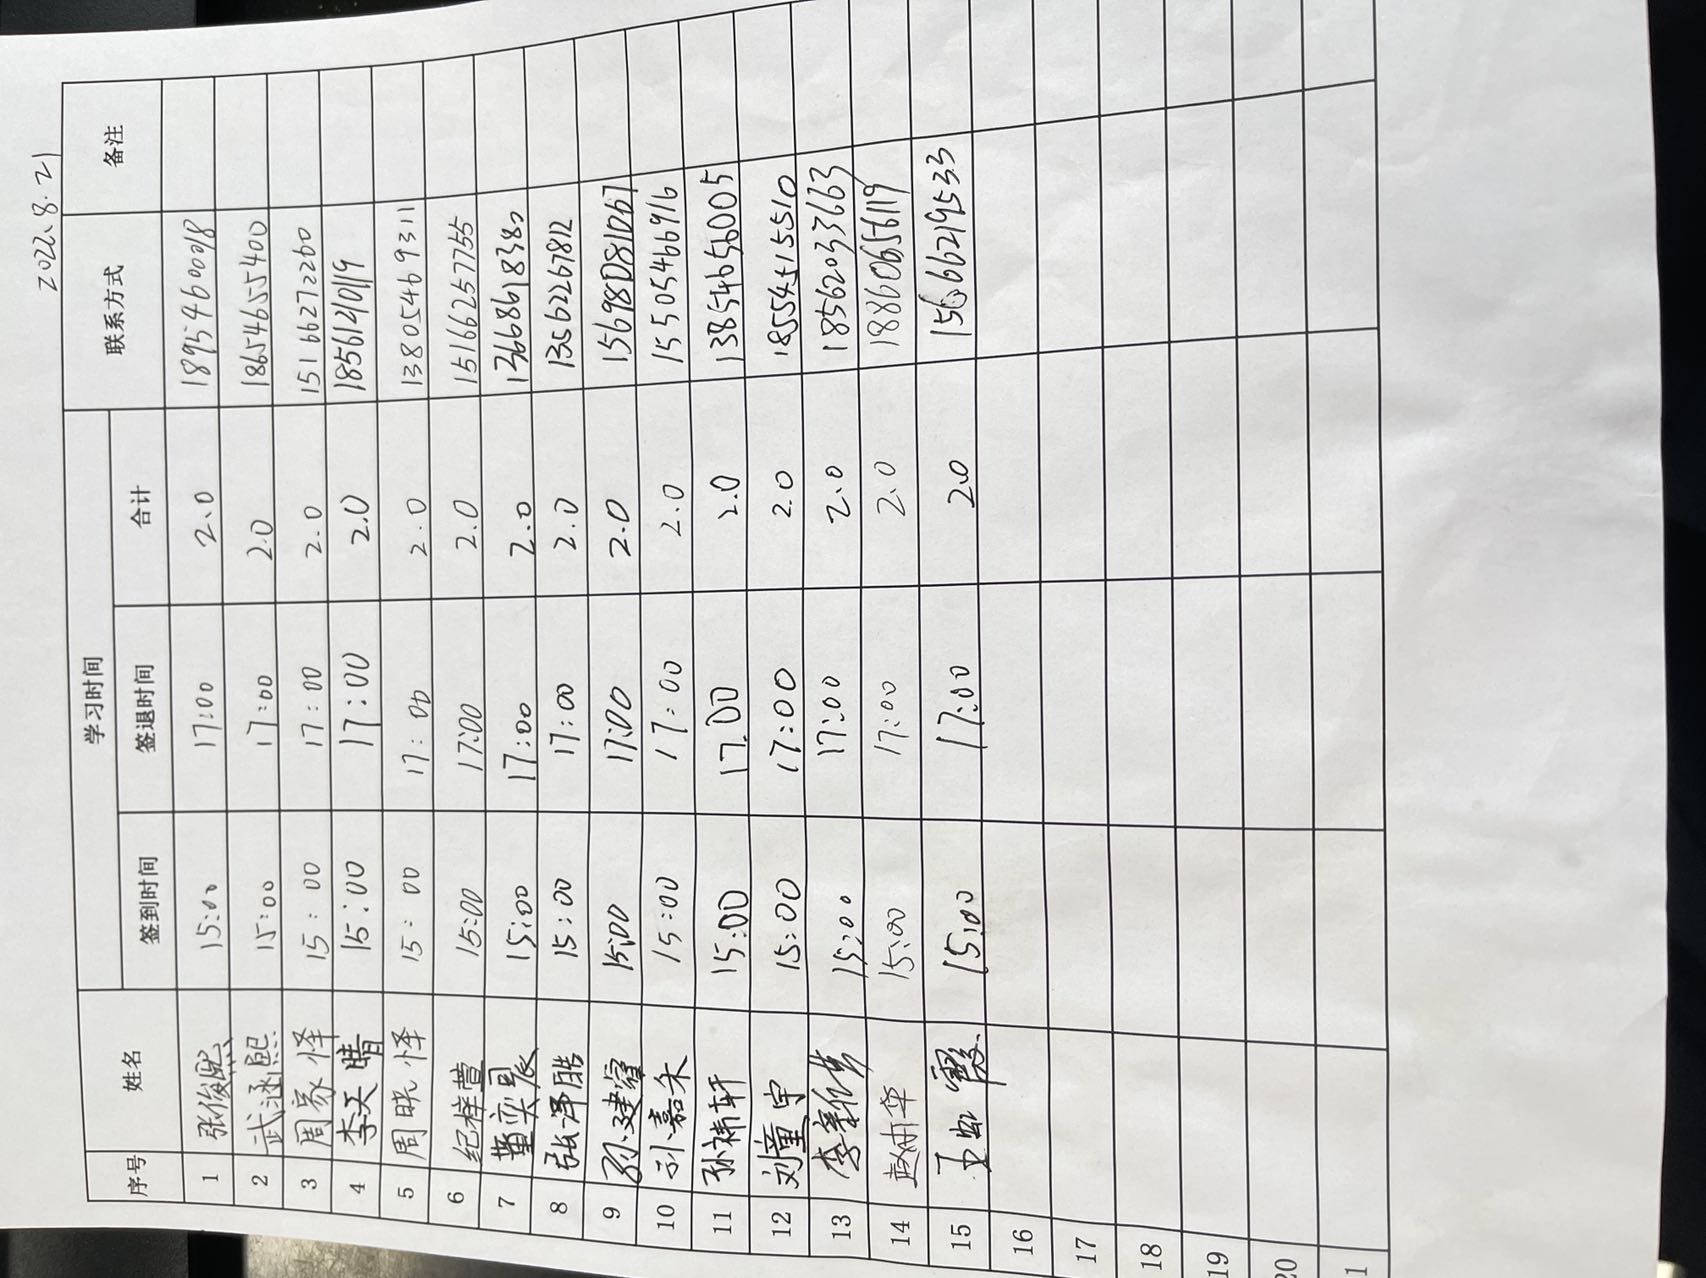 2022.8.21
序号 姓名 学习时间 联系方式 备注
签到时间 签退时间 合计
1 张俊熙 15:00 17:00 2.0 18954600018
2 武涵熙 15:00 17:00 2.0 18654655400
3 周家怿 15:00 17:00 2.0 15166272260
4 李天晴 15:00 17:00 2.0 18561210119
5 周晓怿 15:00 17:00 2.0 13805469311
6 纪梓萱 15:00 17:00 2.0 15166257755
7 董奕辰 15:00 17:00 2.0 13668618380
8 张泽胜 15:00 17:00 2.0 13562267812
9 孙建睿 15:00 17:00 2.0 15698081067
10 刘嘉禾 15:00 17:00 2.0 15505466916
11 孙祎轩 15:00 17.00 2.0 13854656005
12 刘童宇 15:00 17:00 2.0 18554515510
13 15:00 17:00 2.0 18562033663
14 15:00 17:00 2.0 18860656119
15 15:00 17:00 2.0 15666219533
16
17
18
19
20
1